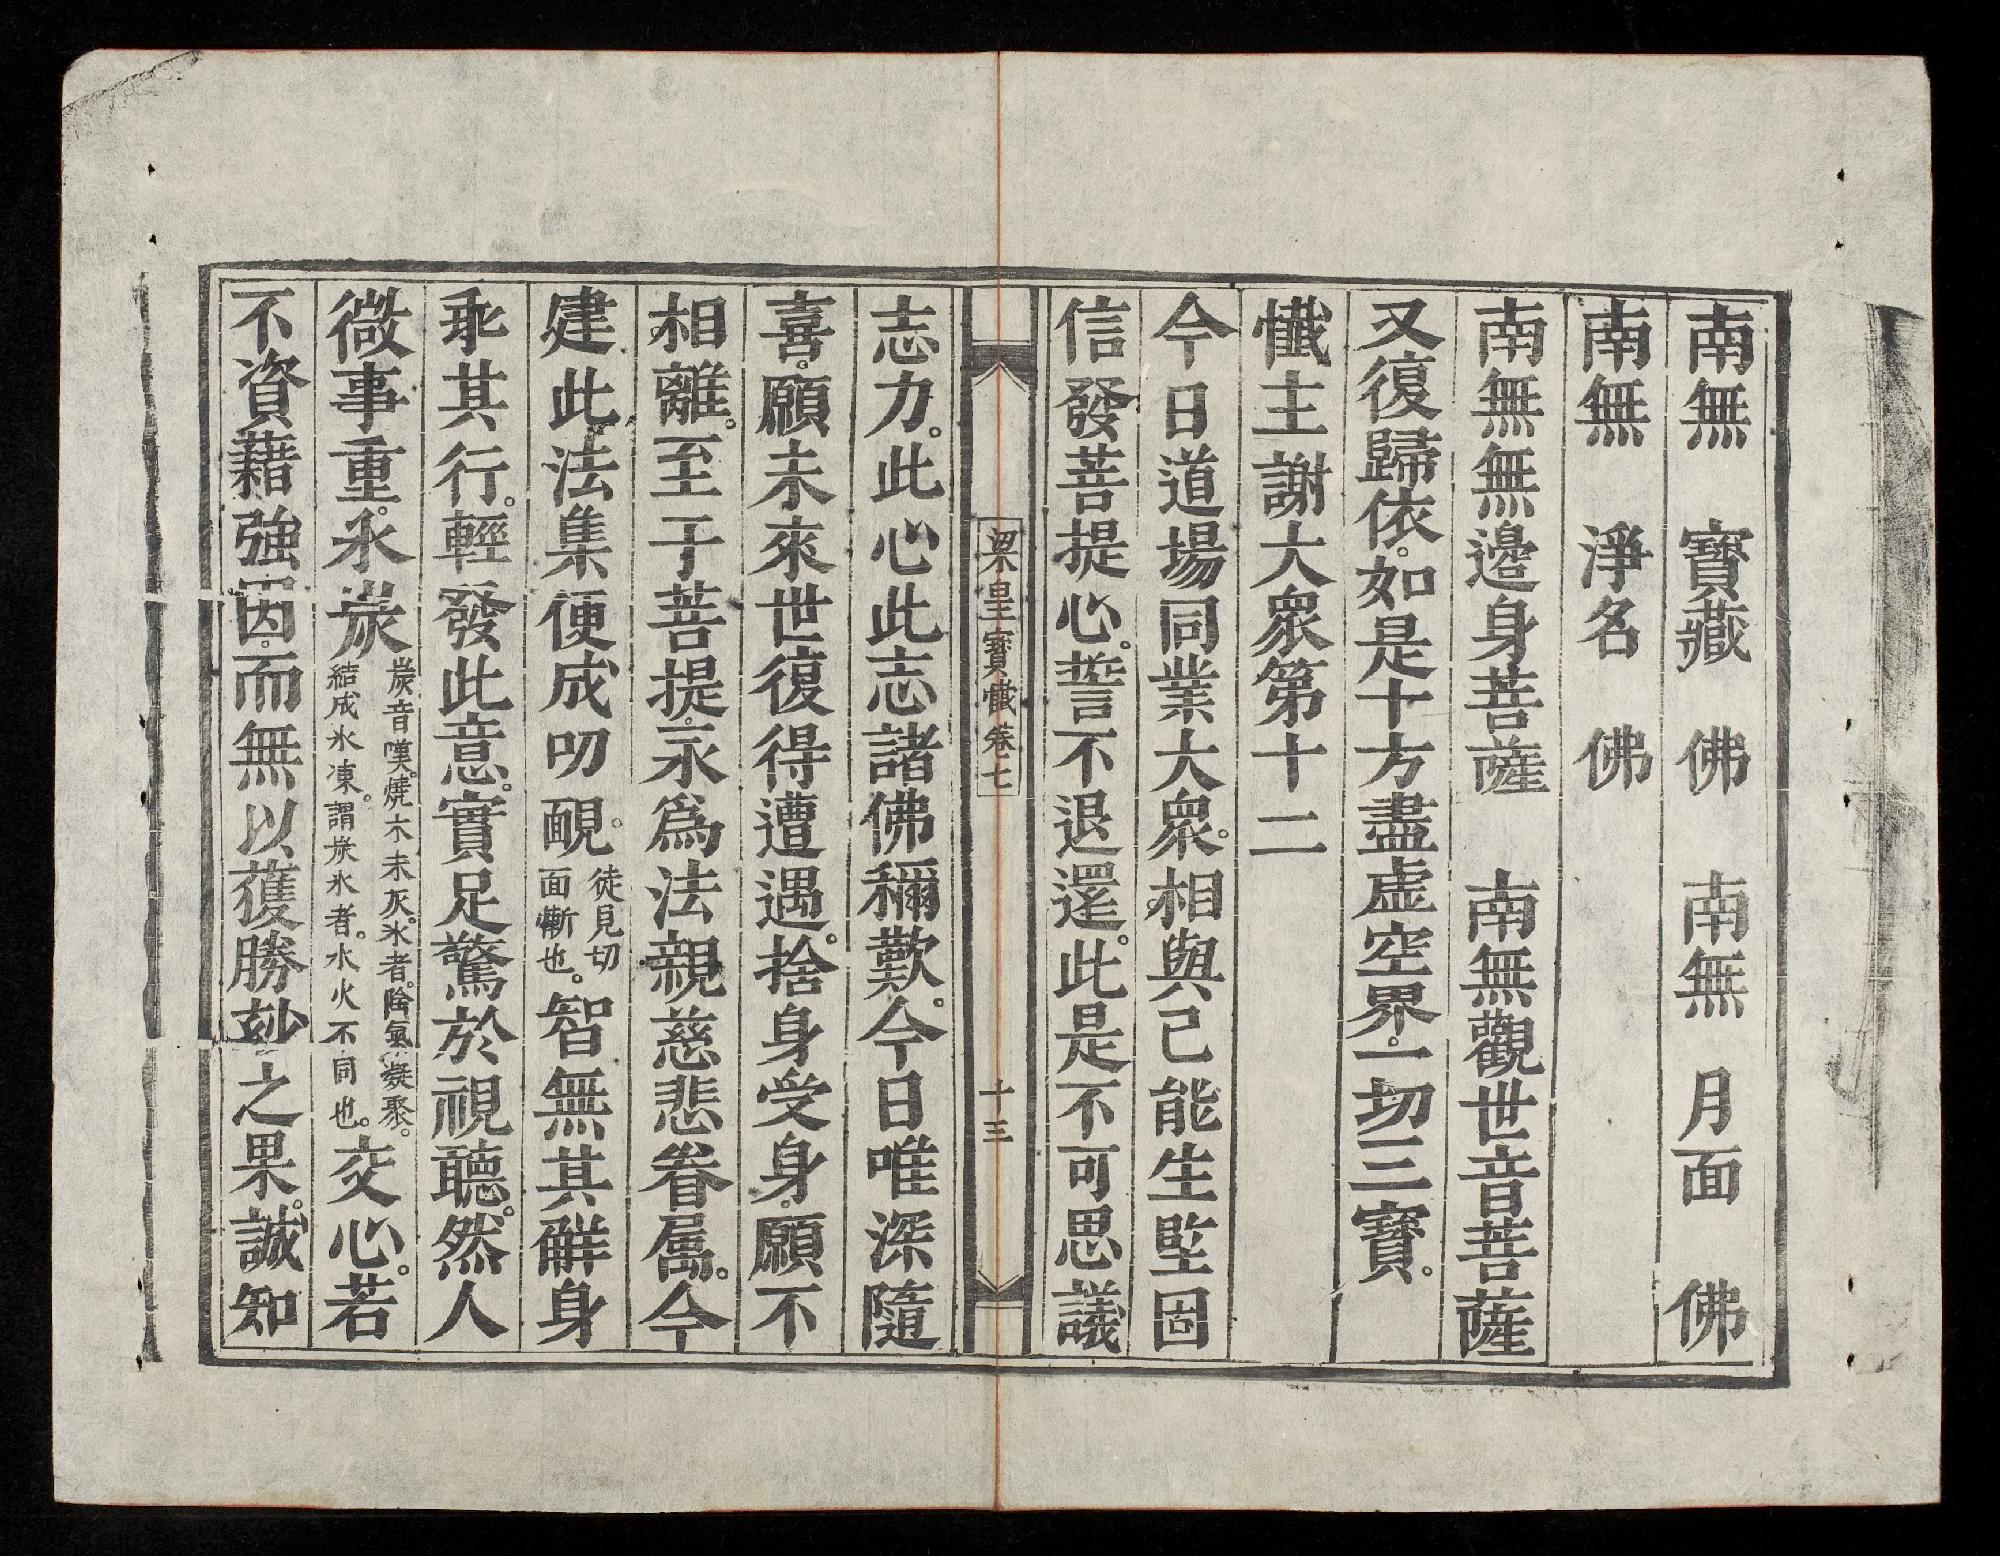 南無寶藏佛 南無月面佛
南無淨名佛
南無無邊身菩薩 南無觀世音菩薩
又復歸依。如是十方盡虛空界。一切三寶。
懺主謝大眾第十二
今日道場同業大眾。相與已能生堅固
信發菩提心。誓不退還。此是不可思議
梁皇寶懺卷七 十三
志力。此心此志諸佛稱歎。今日唯深隨
喜。願未來世復得遭遇。捨身受身。願不
相離。至于菩提。永為法親慈悲眷屬。今
建此法集便成叨靦。徒見切面慚也。智無其解身
乖其行。輕發此意。實足驚於視聽。然人
微事重。氷炭炭音嘆。燒木未灰。氷者。陰氣凝聚。結成氷凍。謂炭氷者。水火不同也。交心。若
不資藉強因。而無以獲勝玅之果。誠知